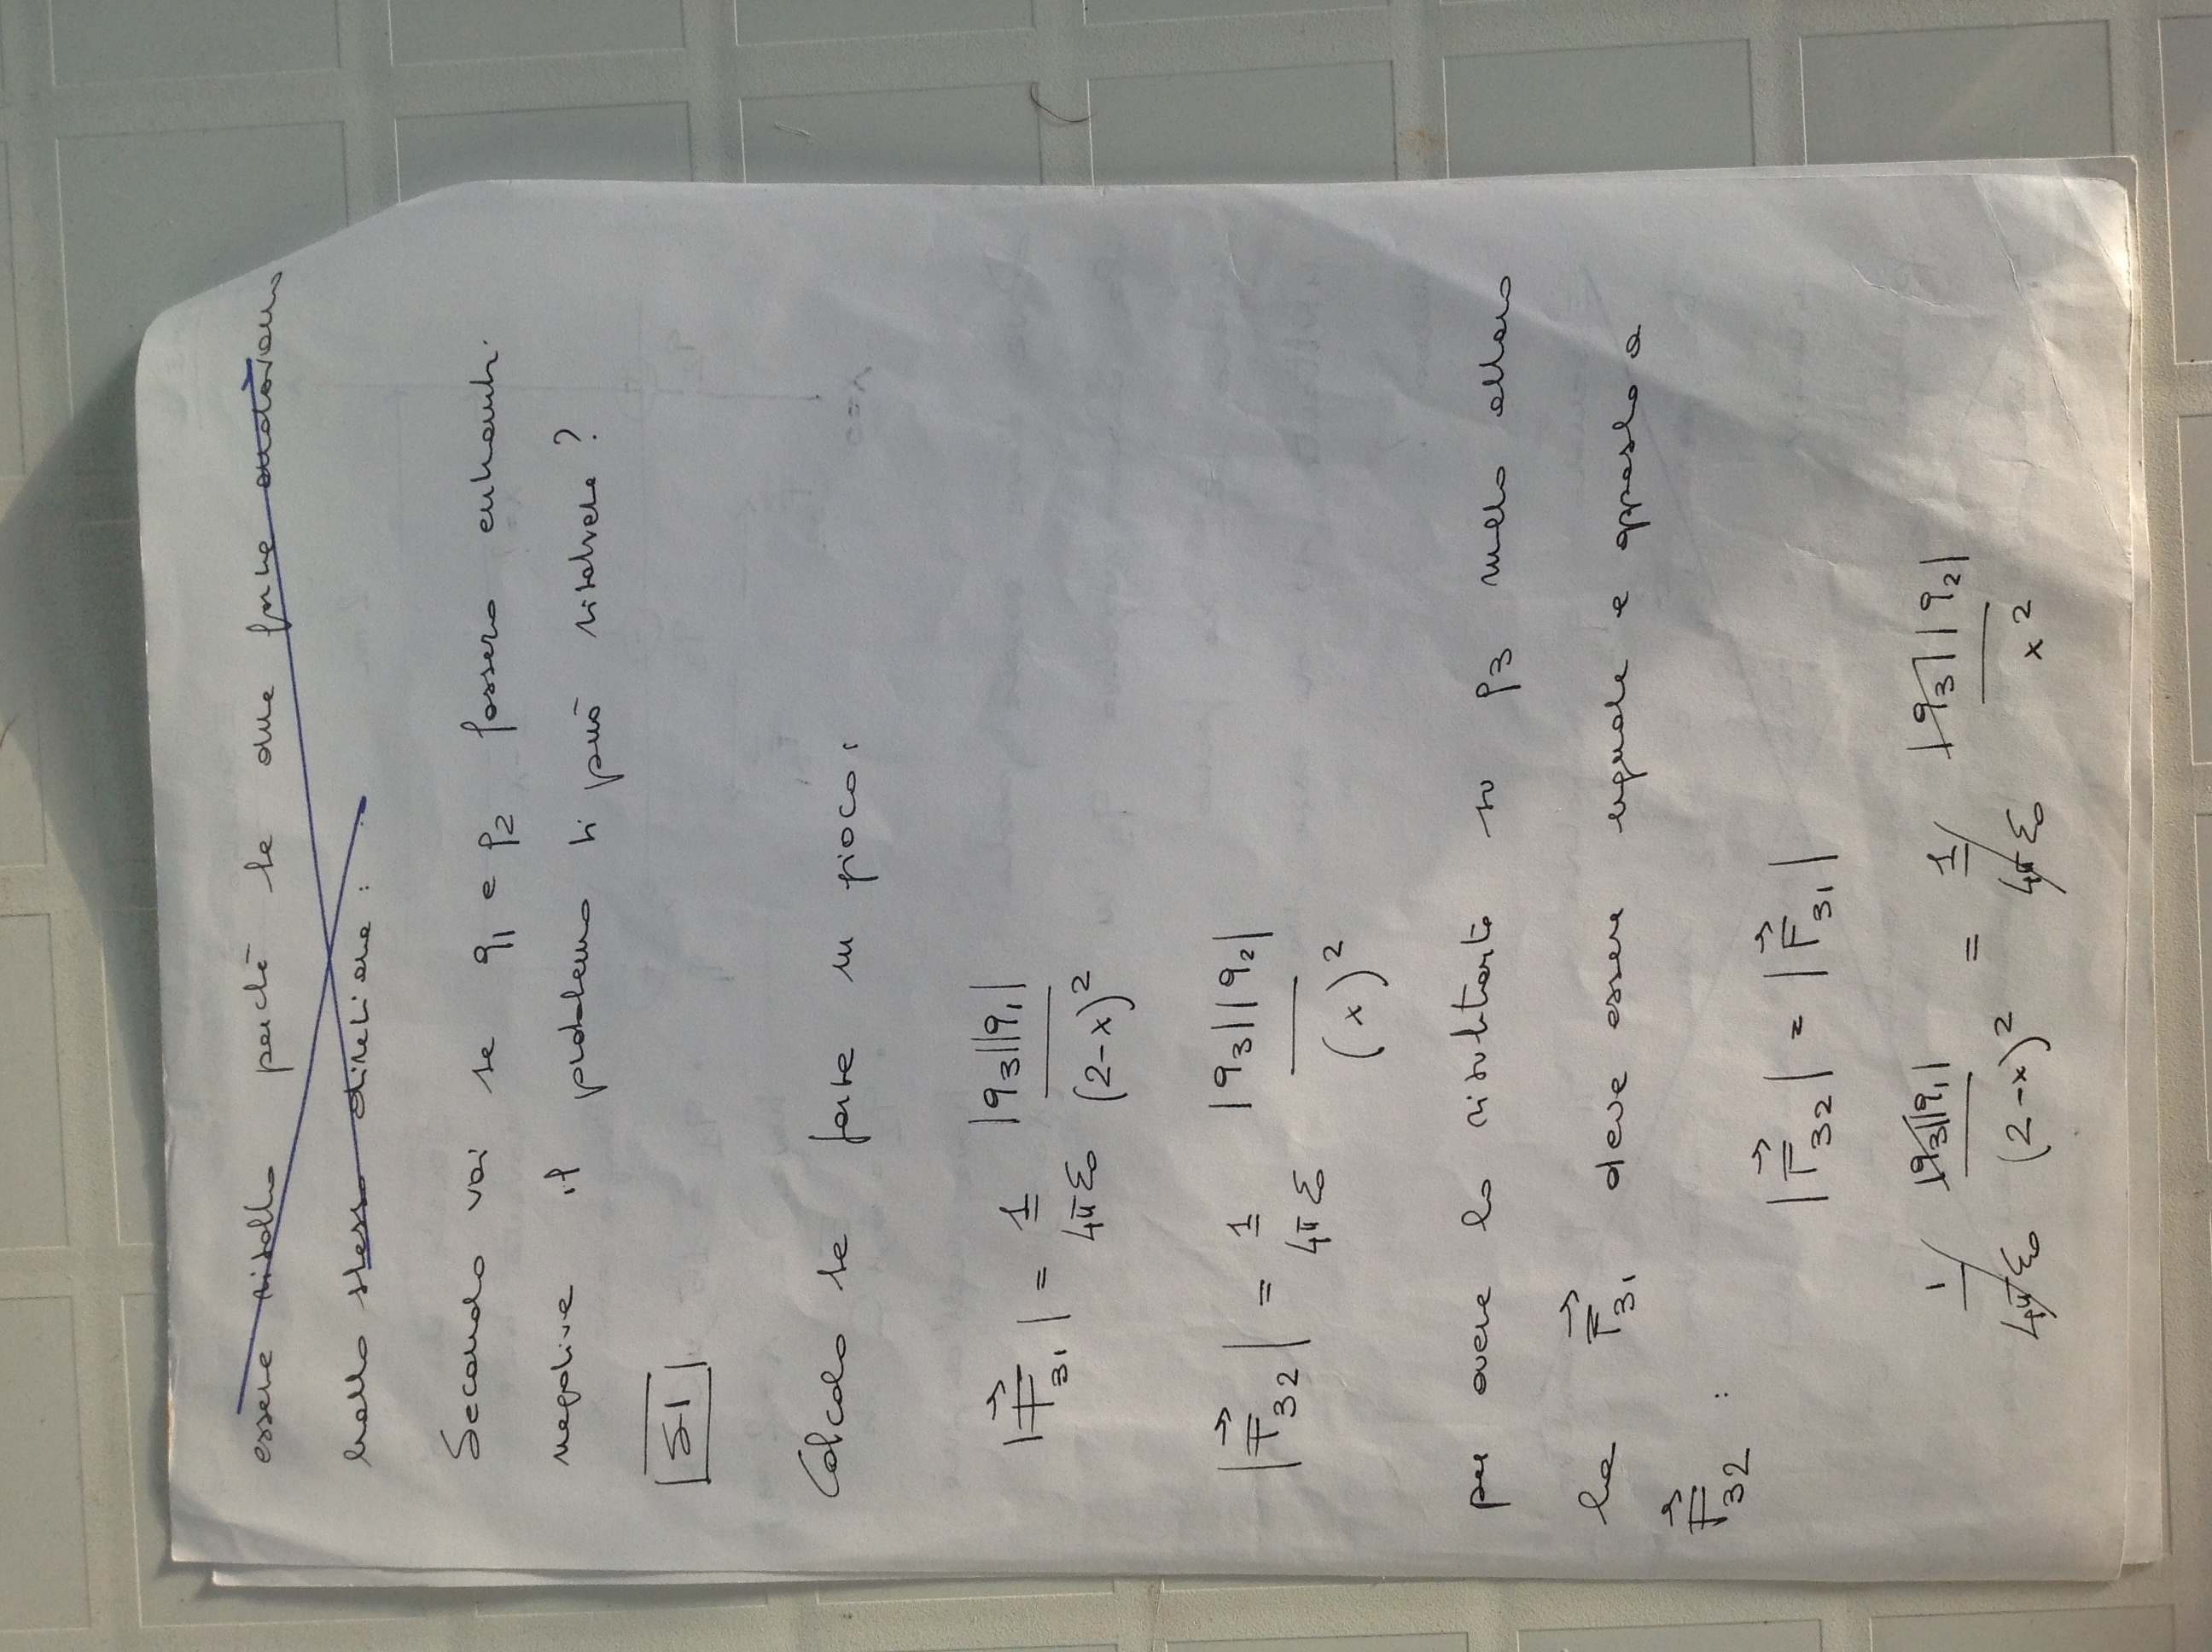 essere risolto perchè le due forze andavano
nella stessa direzione :
Secondo voi se q1 e q2 fossero entrambi
negative il problema si può risolvere ?
SI
Calcolo le forze in gioco :
|F⃗31| = 1/4πε0 |q3||q1|/(2-x)²
|F⃗32| = 1/4πε0 |q3||q2|/(x)²
per avere la risultante su q3 nulla allora
la F⃗31 deve essere uguale e opposta a
F⃗32 :
|F⃗32| = |F⃗31|
1/4πε0 |q3||q1|/(2-x)² = 1/4πε0 |q3||q2|/x²